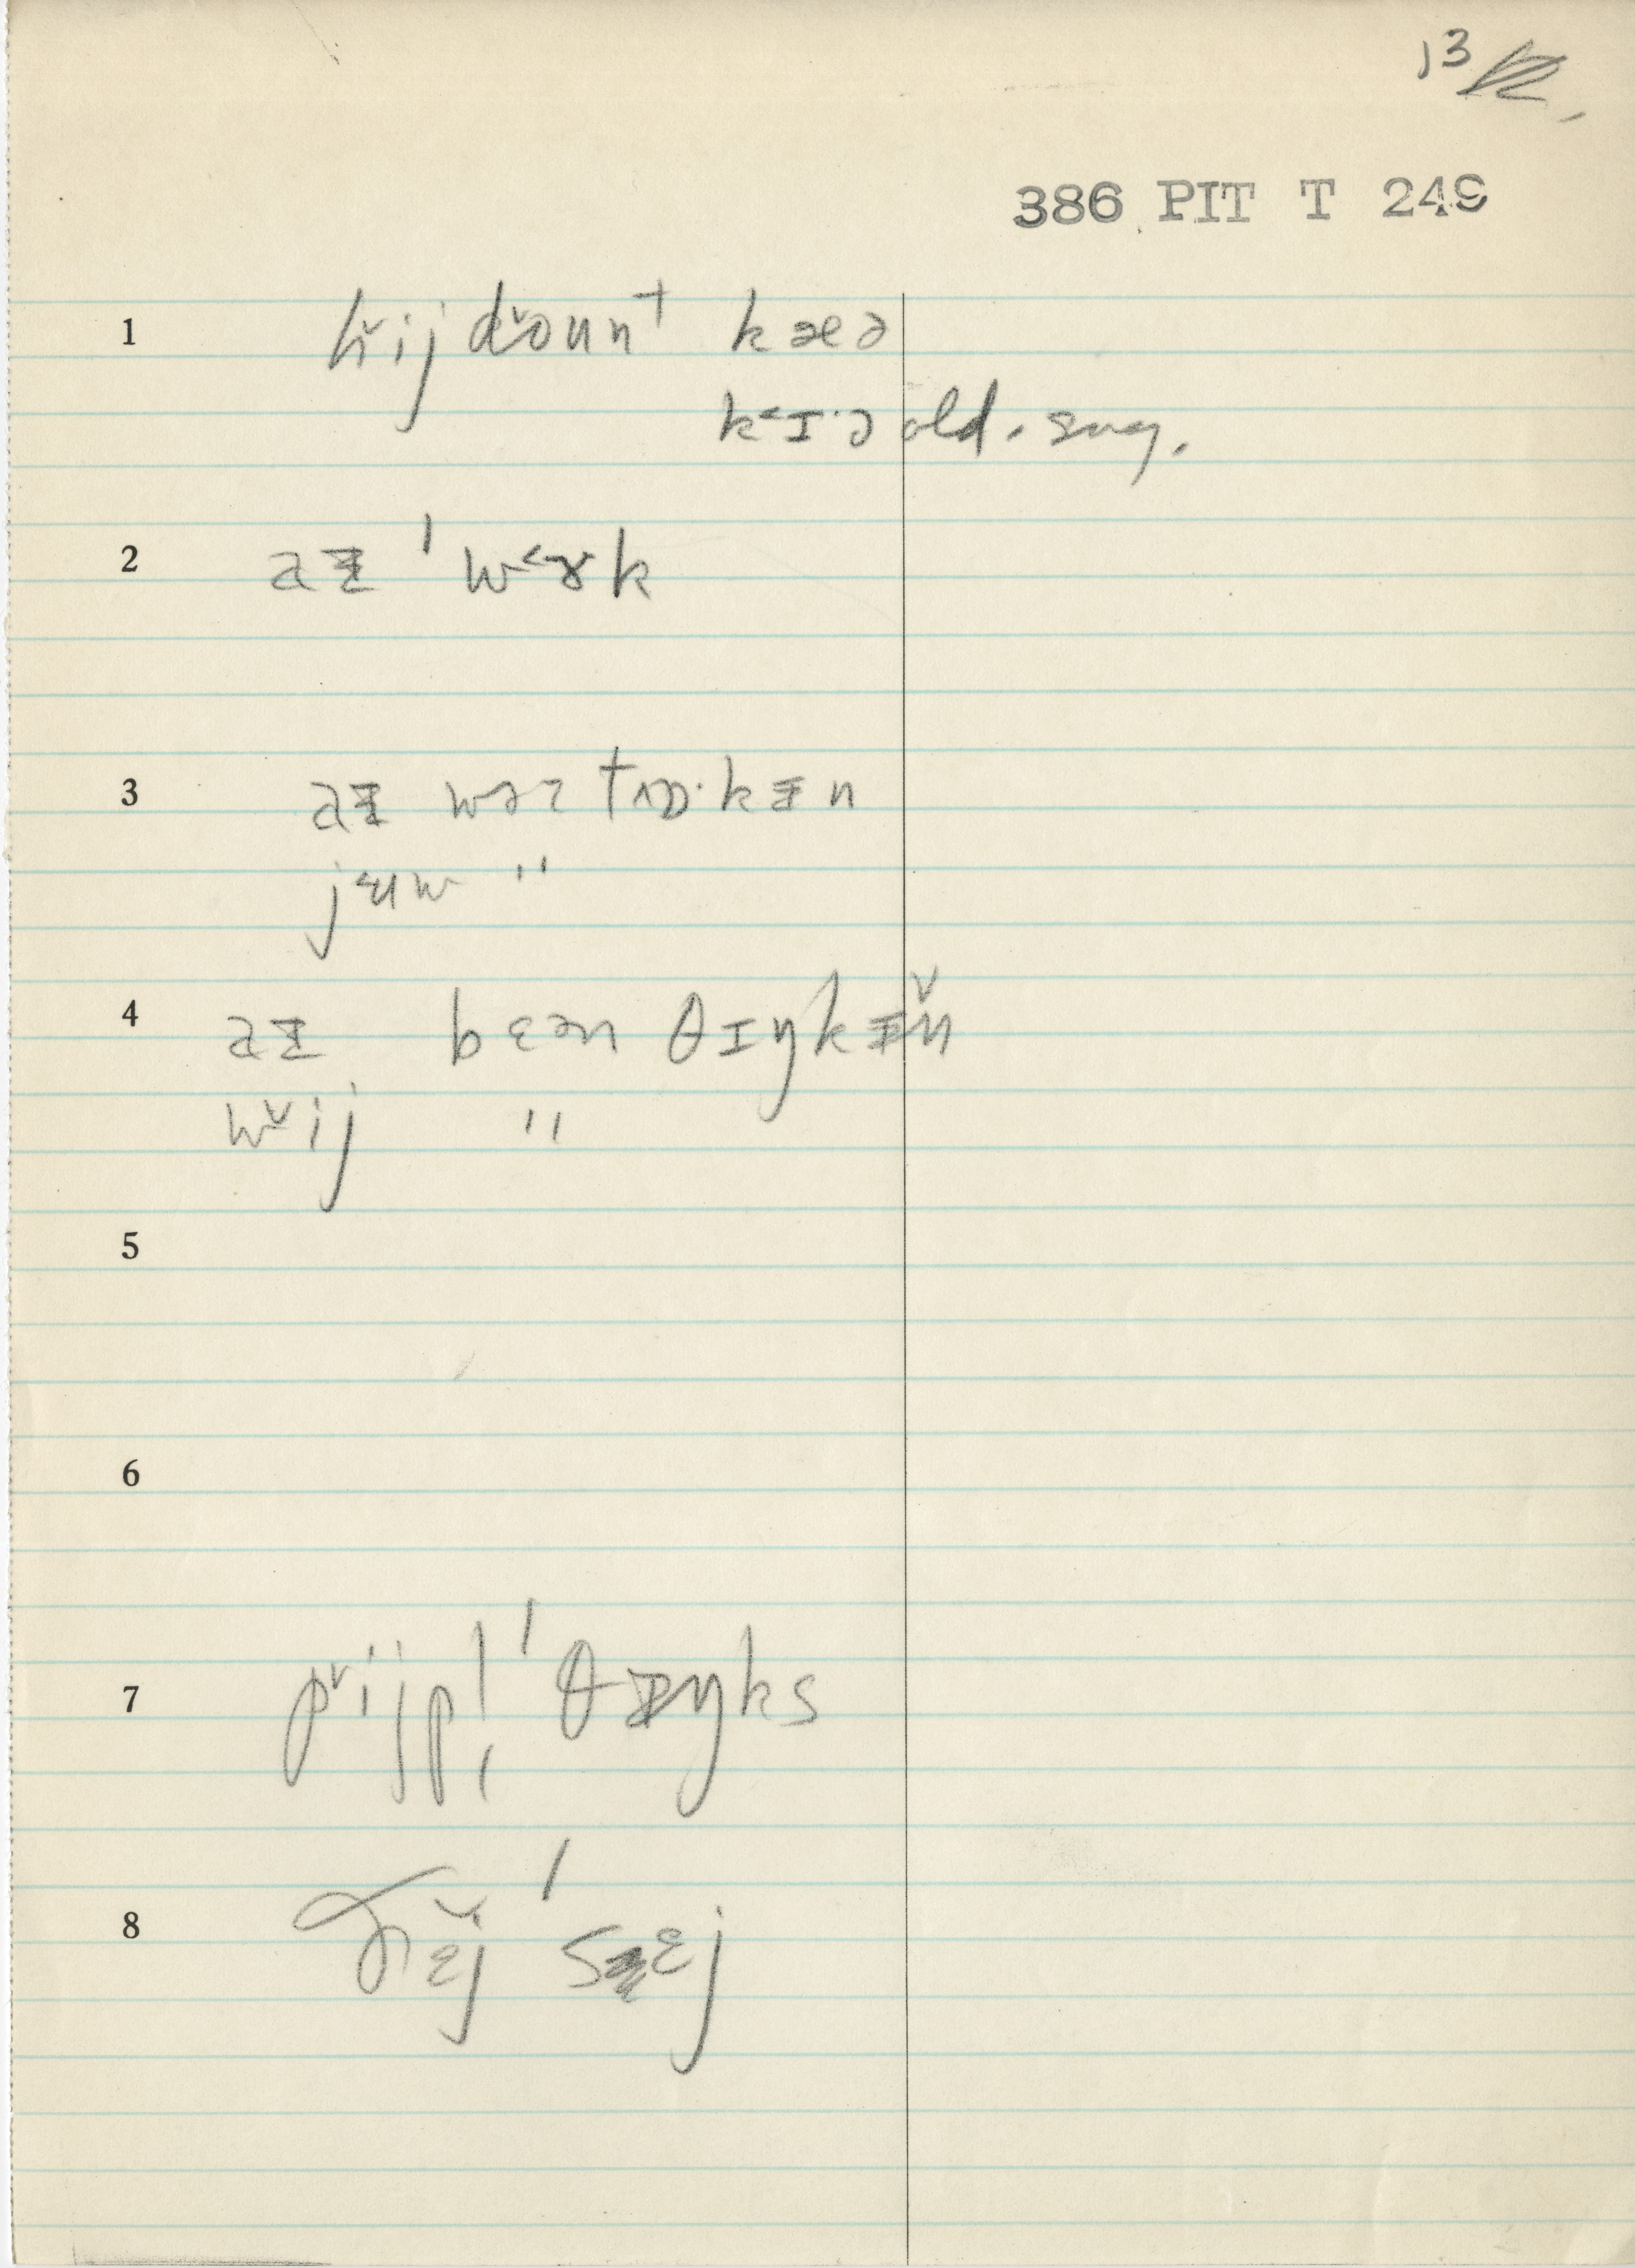 13
386 PIT T 249
1 h̆ij dŏunt kæə
k˂ɪ·ə old. sug.
2 aɪ ˈw˂ɤk
3 aɪ wəz tɒ·kɪn
j˂ʉw "
4 aɪ bɛən θɪŋkɪn̆
w̆ij "
5
6
7 p̌ijpl̩ ˈθɪŋks
8 ðɛ̆j ˈsɛj